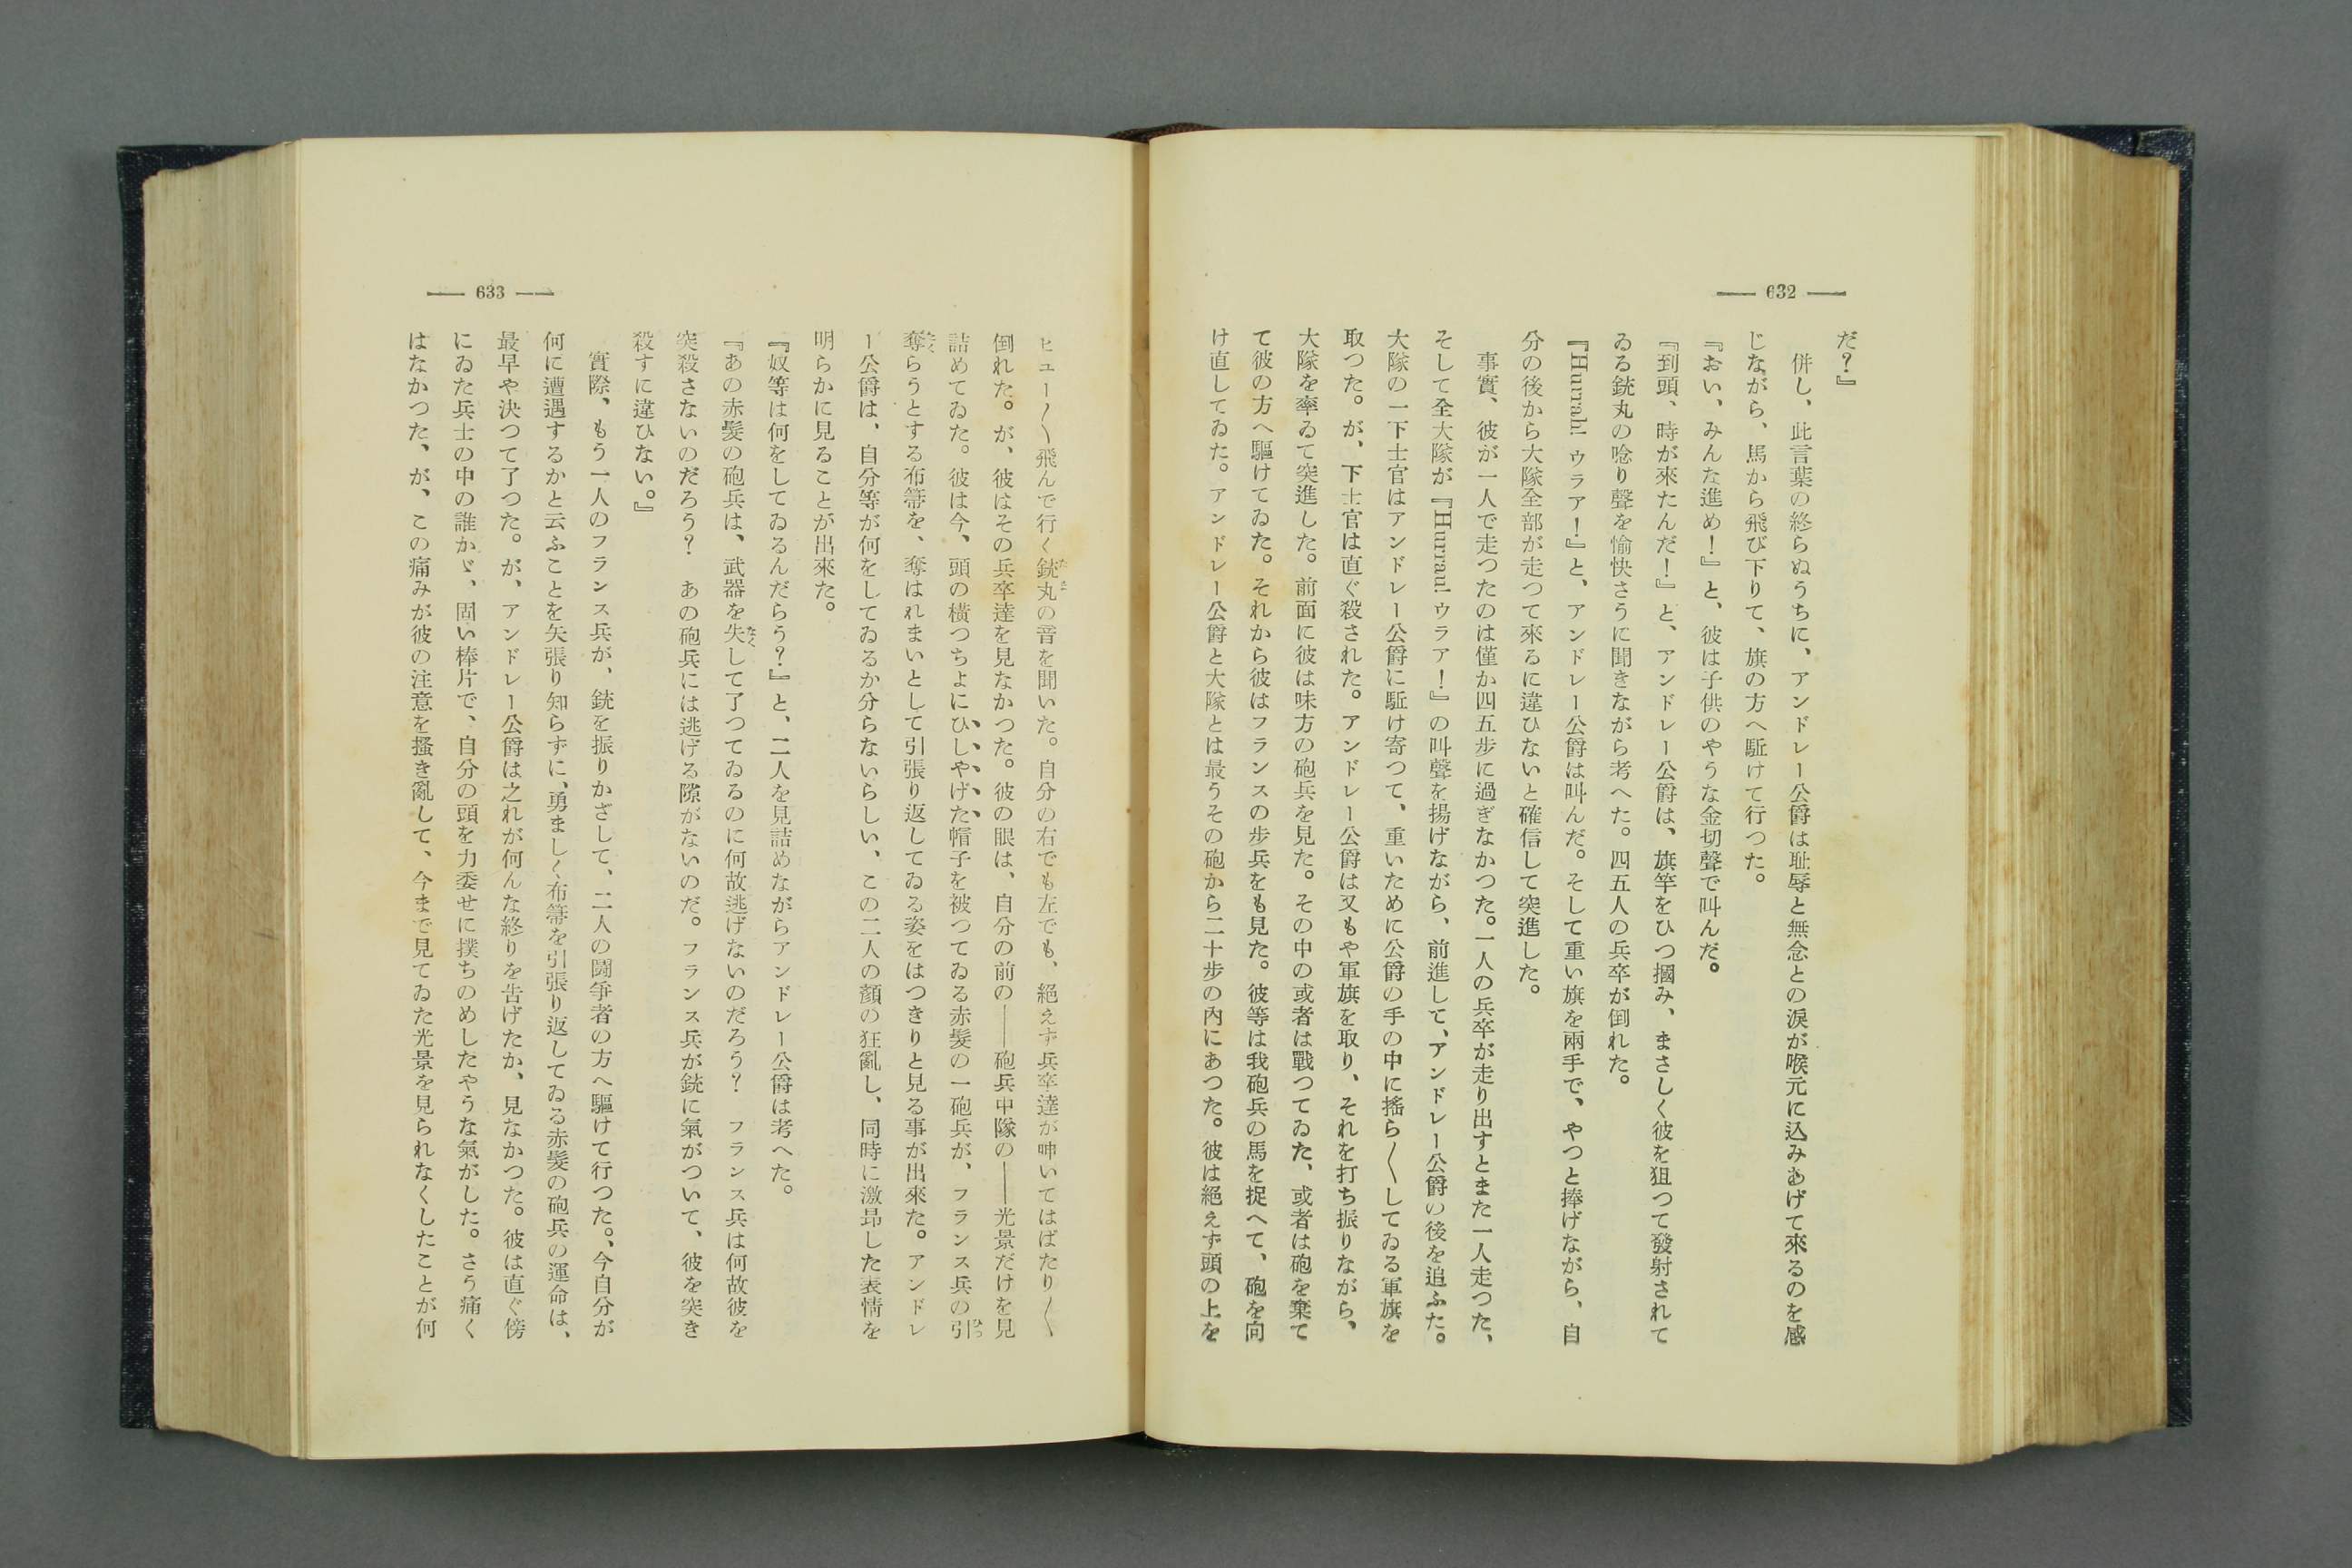 — 632 —
だ？』
併し、此言葉の終らぬうちに、アンドレー公爵は耻辱と無念との淚が喉元に込みあげて來るのを感
じながら、馬から飛び下りて、旗の方へ駈けて行つた。
『おい、みんな進め！』と、彼は子供のやうな金切聲で叫んだ。
『到頭、時が來たんだ！』と、アンドレー公爵は、旗竿をひつ摑み、まさしく彼を狙つて發射されて
ゐる銃丸の唸り聲を愉快さうに聞きながら考へた。四五人の兵卒が倒れた。
『Hurrah! ウラア！』と、アンドレー公爵は叫んだ。そして重い旗を兩手で、やつと捧げながら、自
分の後から大隊全部が走つて來るに違ひないと確信して突進した。
事實、彼が一人で走つたのは僅か四五步に過ぎなかつた。一人の兵卒が走り出すとまた一人走つた、
そして全大隊が『Hurrah! ウラア！』の叫聲を揚げながら、前進して、アンドレー公爵の後を追ふた。
大隊の一下士官はアンドレー公爵に駈け寄つて、重いために公爵の手の中に搖ら〱してゐる軍旗を
取つた。が、下士官は直ぐ殺された。アンドレー公爵は又もや軍旗を取り、それを打ち振りながら、
大隊を率ゐて突進した。前面に彼は味方の砲兵を見た。その中の或者は戰つてゐた、或者は砲を棄て
て彼の方へ驅けてゐた。それから彼はフランスの步兵をも見た。彼等は我砲兵の馬を捉へて、砲を向
け直してゐた。アンドレー公爵と大隊とは最うその砲から二十步の內にあつた。彼は絕えず頭の上を
— 633 —
ヒユー〱飛んで行く銃丸の音を聞いた。自分の右でも左でも、絕えず兵卒達が呻いてはばたり〱
倒れた。が、彼はその兵卒達を見なかつた。彼の眼は、自分の前の――砲兵中隊の――光景だけを見
詰めてゐた。彼は今、頭の橫つちよにひしやげた帽子を被つてゐる赤髮の一砲兵が、フランス兵の引
奪らうとする布箒を、奪はれまいとして引張り返してゐる姿をはつきりと見る事が出來た。アンドレ
ー公爵は、自分等が何をしてゐるか分らないらしい、この二人の顏の狂亂し、同時に激昂した表情を
明らかに見ることが出來た。
『奴等は何をしてゐるんだらう？』と、二人を見詰めながらアンドレー公爵は考へた。
『あの赤髮の砲兵は、武器を失して了つてゐるのに何故逃げないのだろう？　フランス兵は何故彼を
突殺さないのだろう？　あの砲兵には逃げる隙がないのだ。フランス兵が銃に氣がついて、彼を突き
殺すに違ひない。』
實際、もう一人のフランス兵が、銃を振りかざして、二人の鬪爭者の方へ驅けて行つた。、今自分が
何に遭遇するかと云ふことを矢張り知らずに、勇ましく布箒を引張り返してゐる赤髮の砲兵の運命は、
最早や決つて了つた。が、アンドレー公爵は之れが何んな終りを吿げたか、見なかつた。彼は直ぐ傍
にゐた兵士の中の誰かゞ、固い棒片で、自分の頭を力委せに撲ちのめしたやうな氣がした。さう痛く
はなかつた、が、この痛みが彼の注意を搔き亂して、今まで見てゐた光景を見られなくしたことが何